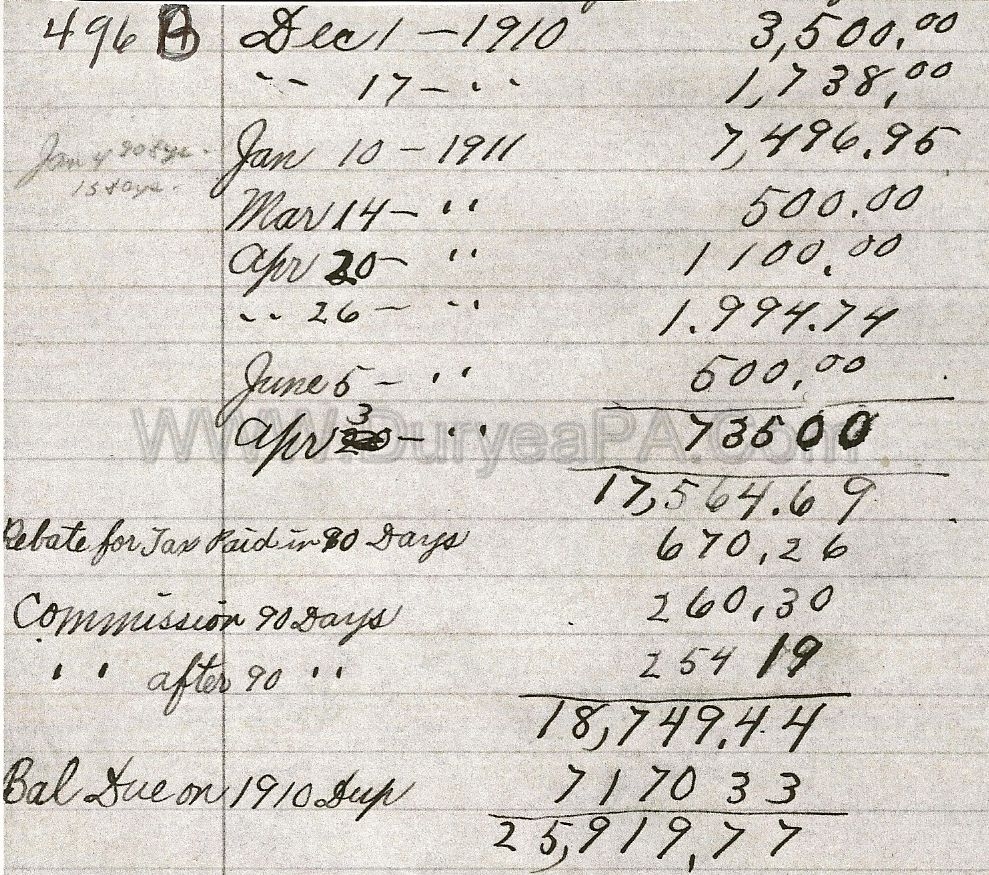 496 A Dec 1 — 1910 3,500.00
" 17 — " 1,738.00
Jan 10 — 1911 7,496.95
Mar 14 — " 500.00
Apr 20 — " 1100.00
" 26 — " 1.994.74
June 5 — " 500.00
Apr 3 — " 735 00
WWW.DuryeaPA.Com
17,564.69
Rebate for Tax Paid in 90 Days 670.26
Commission 90 Days 260.30
" " after 90 " 254 19
18,749.44
Bal Due on 1910 Dup 7170 33
25,919.77